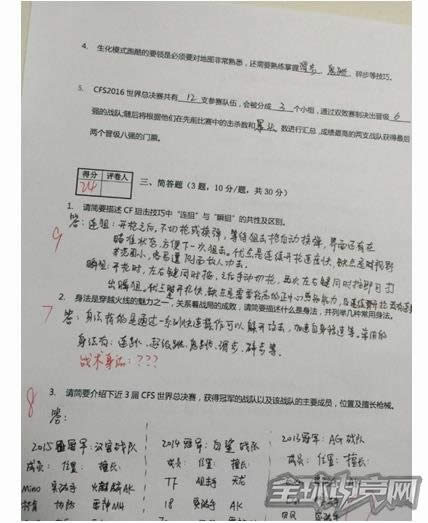 4. 生化模式跑酷的要领是必须要对地图非常熟悉，还需要熟练掌握滑步、鬼跳、碎步等技巧。
5. CFS2016 世界总决赛共有 12 支参赛队伍，会被分成 3 个小组，通过双败赛制决出晋级 6
强的战队;随后将根据他们在先前比赛中的击杀数和 数进行汇总，成绩最高的两支战队获得最后
两个晋级八强的门票。
得分 评卷人
24
三、简答题（3 题，10 分/题，共 30 分）
1. 请简要描述 CF 狙击技巧中“连狙”与“瞬狙”的共性及区别。
9
答：连狙：开枪之后，不切枪或换弹，等待狙击枪自动换弹，界面还存在
瞄准状态，方便下一次狙击。优点是连续开枪速度快，缺点是对视野
范围小，容易遭 面敌人攻击。
瞬狙：开枪时，左右键同时按，之后手动切枪，再次左右键同时按即可打
出瞬狙。优点是开枪快，缺点是需要
2. 身法是穿越火线的魅力之一，关系着战局的成败，请简要描述什么是身法，并列举几种常用身法。
7
答：身法 是通过一系列快速操作可以躲开攻击，加速自身移速等。常用的
身法有：连跳、超级跳、鬼跳、滑步、碎步等。
战术身法：？？？
3. 请简要介绍下近 3 届 CFS 世界总决赛，获得冠军的战队以及该战队的主要成员，位置及擅长枪械。
8
答：
2015 冠军：汉宫战队 2014 冠军： 战队 2013 冠军：AG 战队
成员： 位置： 擅长： 成员： 位置： 擅长： 成员： 位置： 擅长：
Mino 突破手 火麒麟AK 77 狙击手
18 突破手 AK
全球电竞网